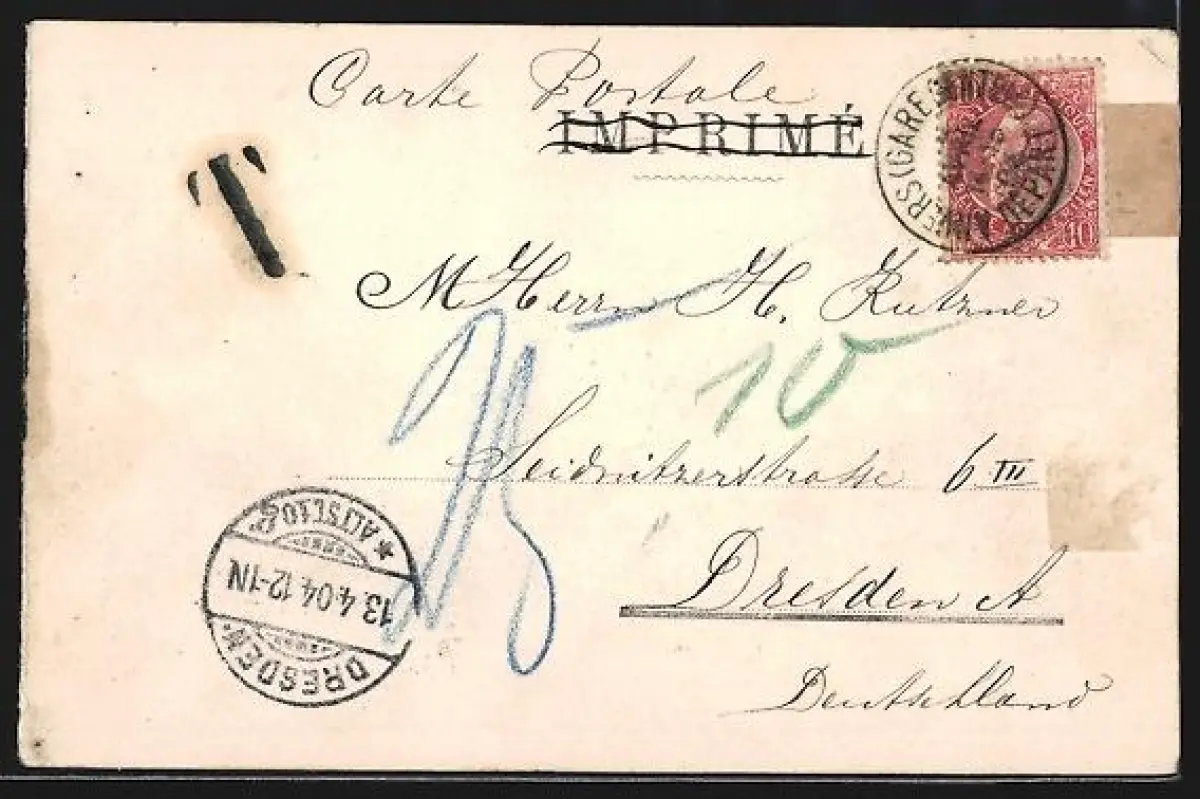 Carte Postale
IMPRIMÉ
ANVERS (GARE CENTRALE)
DÉPART
10
T
M Herrn H. Kutzner
10
25
Seidnitzerstrasse 6 III
Dresden A
Deutschland
DRESDEN.
13.4.04.12-1N
* ALTST. 10